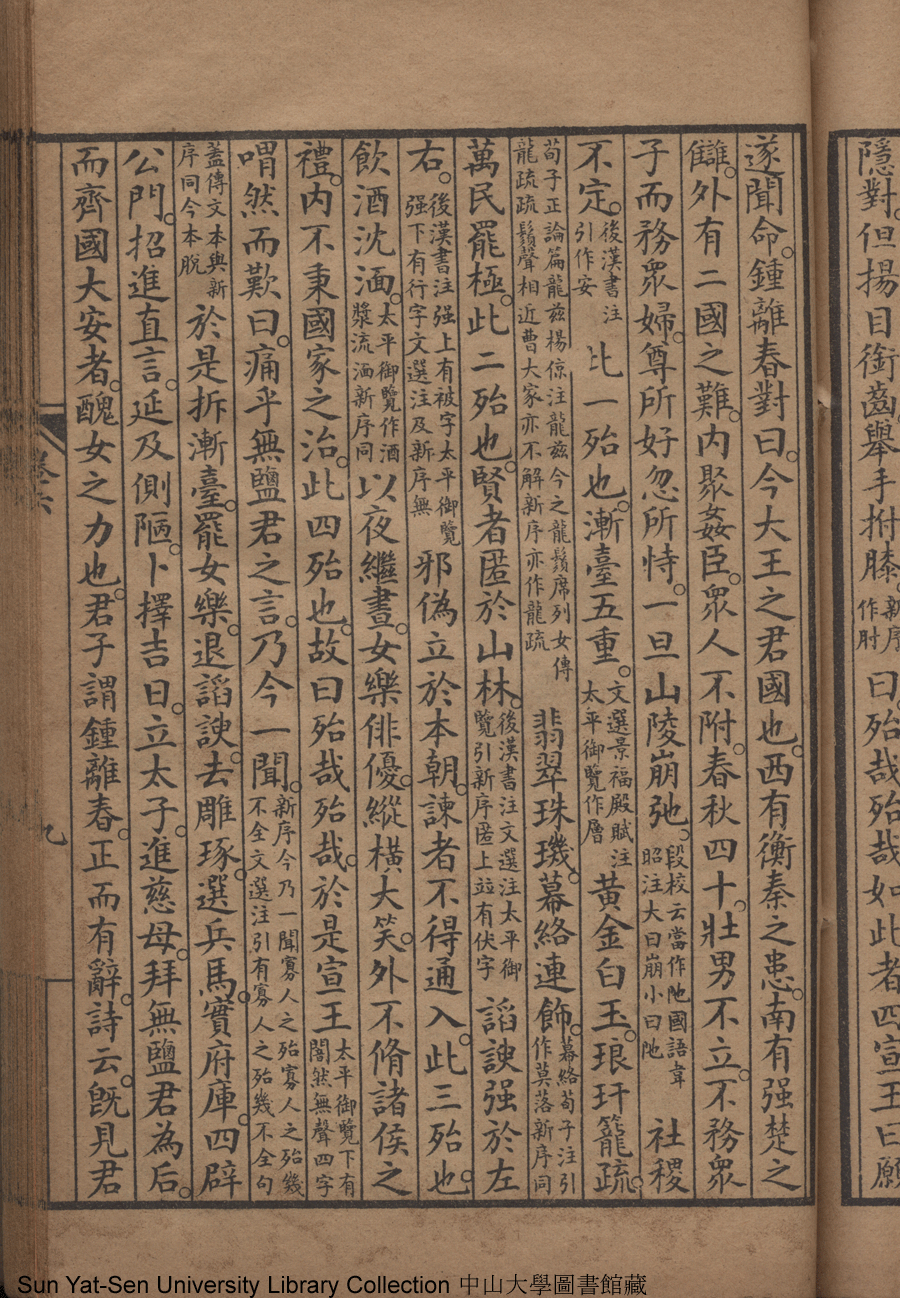 隱對但揚目銜齒舉手拊膝新序作肘曰殆哉殆哉如此者四宣王曰願
遂聞命鍾離春對曰今大王之君國也西有衡秦之患南有强楚之
讎外有二國之難內聚姦臣眾人不附春秋四十壯男不立不務眾
子而務眾婦尊所好忽所恃一旦山陵崩弛段校云當作阤國語韋昭注大曰崩小曰阤社稷
不定後漢書注引作安此一殆也漸臺五重文選景福殿賦注太平御覽作層黃金白玉琅玕籠疏
荀子正論篇龍茲楊倞注龍茲今之龍鬚席列女傳龍疏疏鬚聲相近曹大家亦不解新序亦作龍疏翡翠珠璣幕絡連飾幕絡荀子注引作莫落新序同
萬民罷極此二殆也賢者匿於山林後漢書注文選注太平御覽引新序匿上竝有伏字諂諛强於左
右後漢書注强上有被字太平御覽强下有行字文選注及新序無邪偽立於本朝諫者不得通入此三殆也
飲酒沈湎太平御覽作酒漿流湎新序同以夜繼晝女樂俳優縱橫大笑外不脩諸侯之
禮內不秉國家之治此四殆也故曰殆哉殆哉於是宣王太平御覽下有闇然無聲四字
喟然而歎曰痛乎無鹽君之言乃今一聞新序今乃一聞寡人之殆寡人之殆幾不全文選注引有寡人之殆幾不全句
蓋傳文本與新序同今本脫於是拆漸臺罷女樂退諂諛去雕琢選兵馬實府庫四辟
公門招進直言延及側陋卜擇吉日立太子進慈母拜無鹽君為后
而齊國大安者醜女之力也君子謂鍾離春正而有辭詩云旣見君
卷六
九
Sun Yat-Sen University Library Collection 中山大學圖書館藏